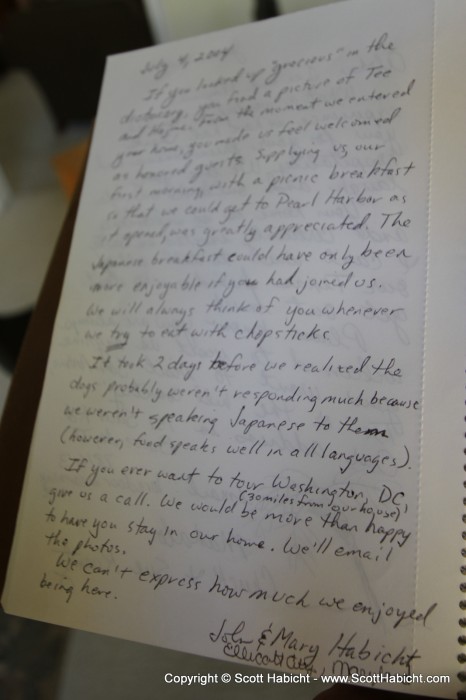 July 4, 2004
If you looked up "gracious" in the
dictionary, you find a picture of Tee
and  From the moment we entered
your home, you made us feel welcomed
as honored guests. Supplying us, our
first morning, with a picnic breakfast
so that we could get to Pearl Harbor as
it opened, was greatly appreciated. The
Japanese breakfast could have only been
more enjoyable if you had joined us.
We will always think of you whenever
we try to eat with chopsticks.
It took 2 days before we realized the
dogs probably weren't responding much because
we weren't speaking Japanese to them
(however, food speaks well in all languages).
If you ever want to tour Washington, DC,
(30 miles from our house)
give us a call. We would be more than happy
to have you stay in our home. We'll email
the photos.
We can't express how much we enjoyed
being here.
John & Mary Habicht
Ellicott City,
Copyright © Scott Habicht - www.ScottHabicht.com